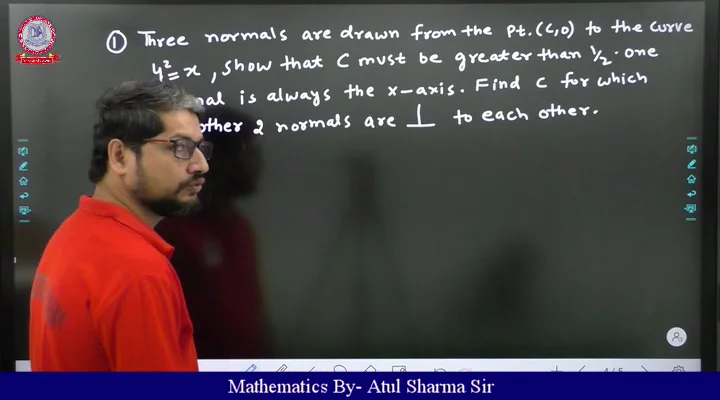 ① Three normals are drawn from the pt. (c,0) to the curve
y²=x, show that c must be greater than 1/2. one
is always the x-axis. Find c for which
other 2 normals are ⊥ to each other.
Mathematics By- Atul Sharma Sir